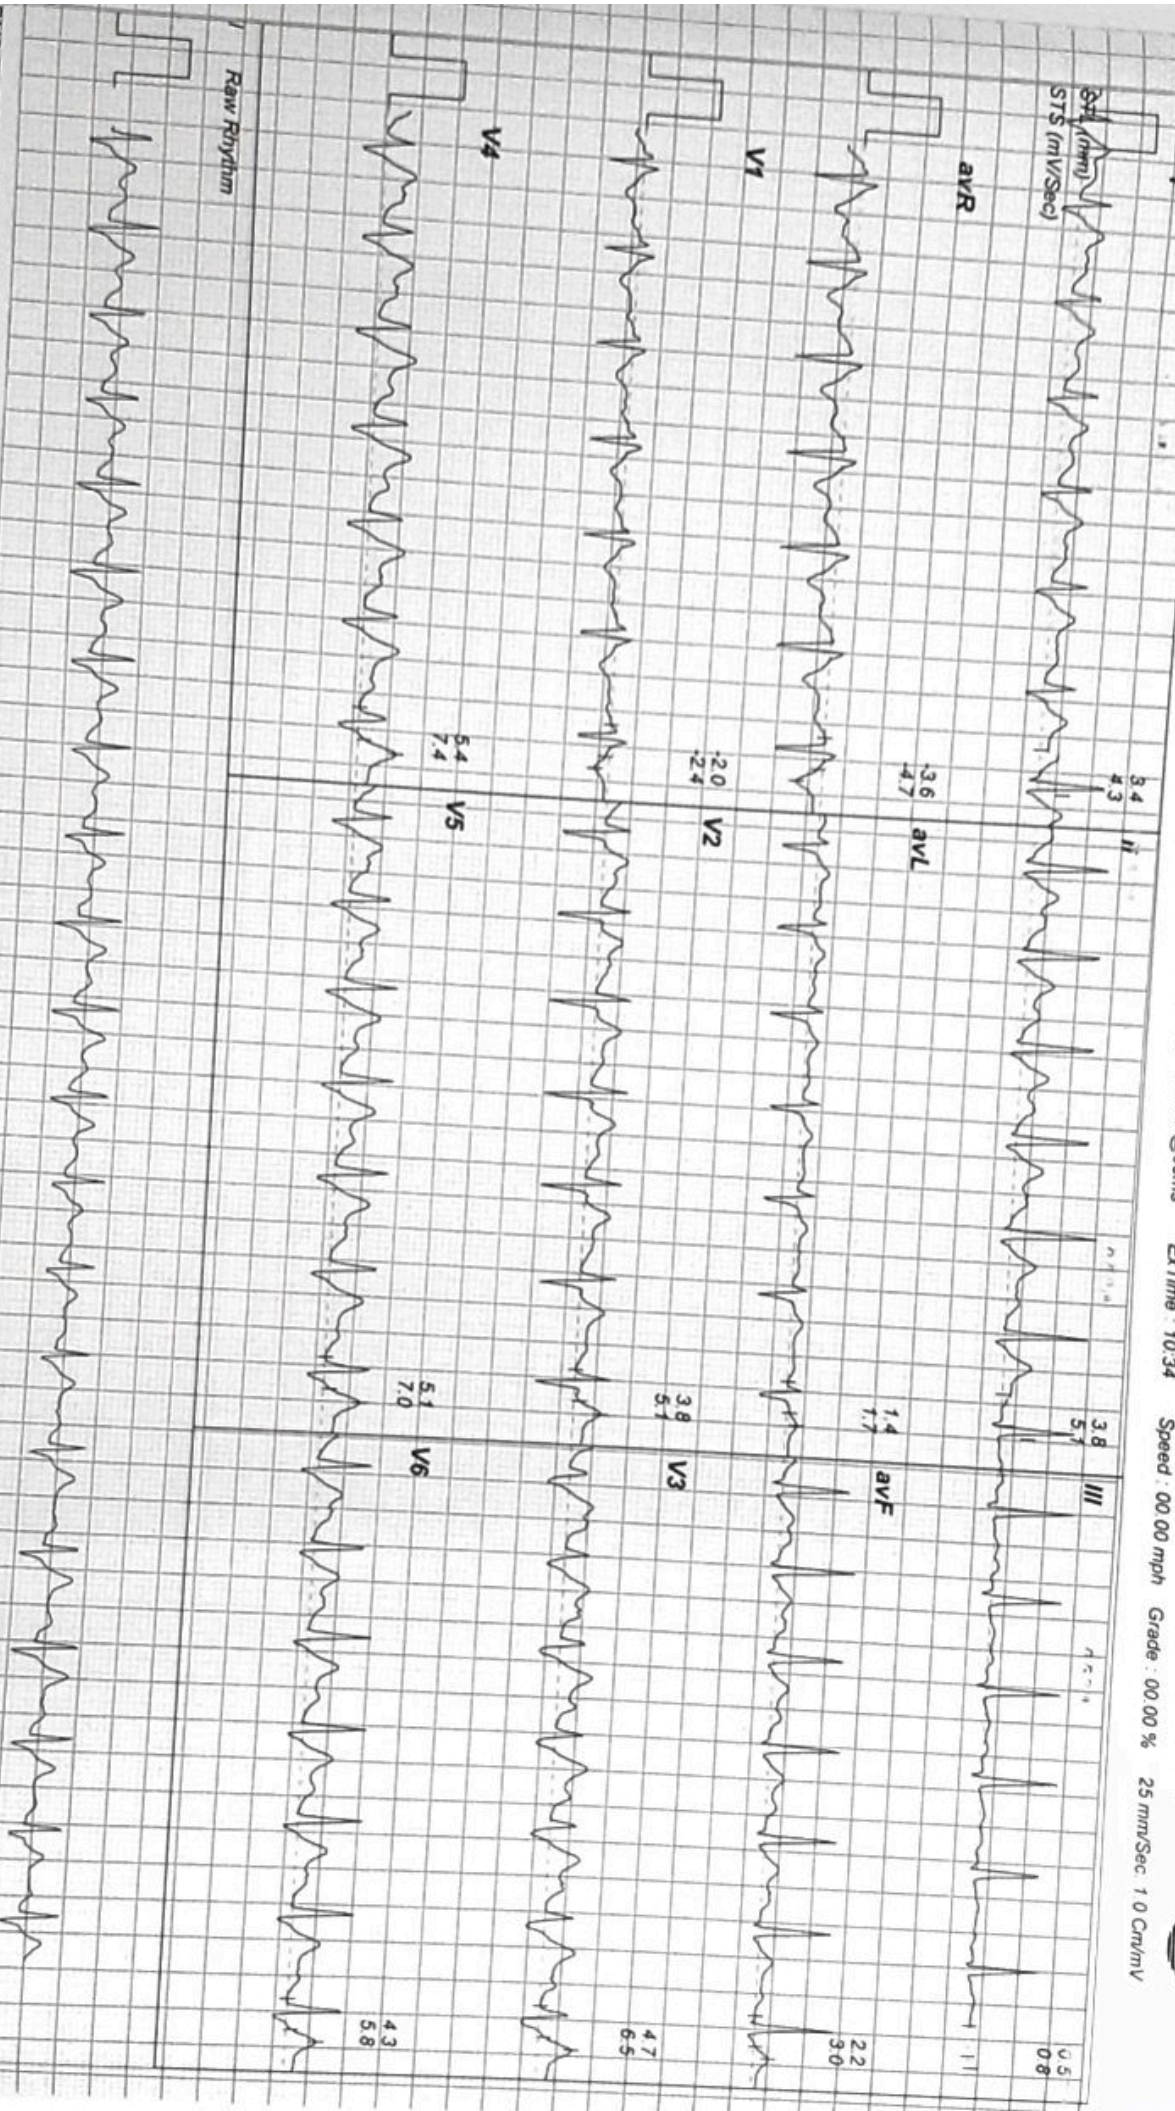 ExTime : 10:34 Speed : 00.00 mph Grade : 00.00 % 25 mm/Sec. 1.0 Cm/mV
STL (mm)
STS (mV/Sec)
3.4
4.3
II
3.8
5.1
III
0.5
0.8
avR
-3.6
-4.7
avL
1.4
1.7
avF
2.2
3.0
V1
-2.0
-2.4
V2
3.8
5.1
V3
4.7
6.5
V4
5.4
7.4
V5
5.1
7.0
V6
4.3
5.8
Raw Rhythm